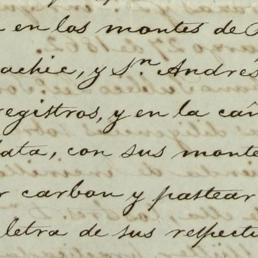 en los montes de
achic, y Sn Andrés
registros, y en la
lata, con sus monte
r carbon y pastear
letra de sus respecti